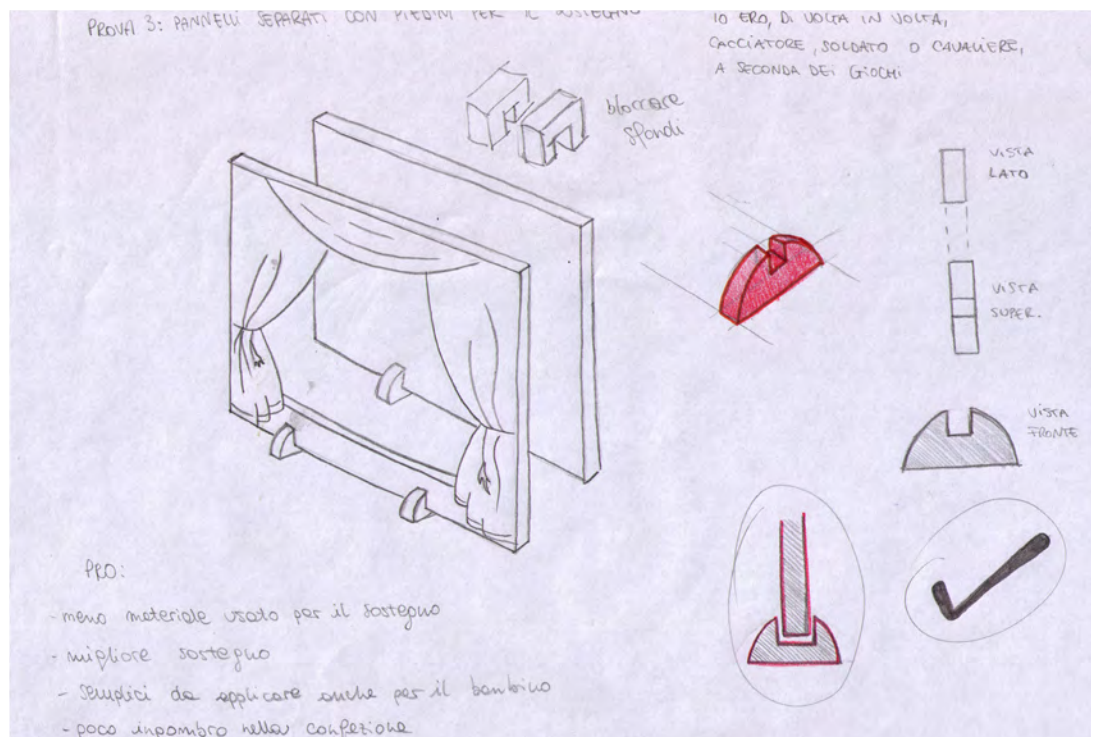 PROVA 3: PANNELLI SEPARATI CON PIEDINI PER IL SOSTEGNO
IO ERO, DI VOLTA IN VOLTA,
CACCIATORE, SOLDATO O CAVALIERE,
A SECONDA DEI GIOCHI
bloccare
sfondi
VISTA
LATO
VISTA
SUPER.
VISTA
FRONTE
PRO:
- meno materiale usato per il sostegno
- migliore sostegno
- semplici da applicare anche per il bambino
- poco ingombro nella confezione